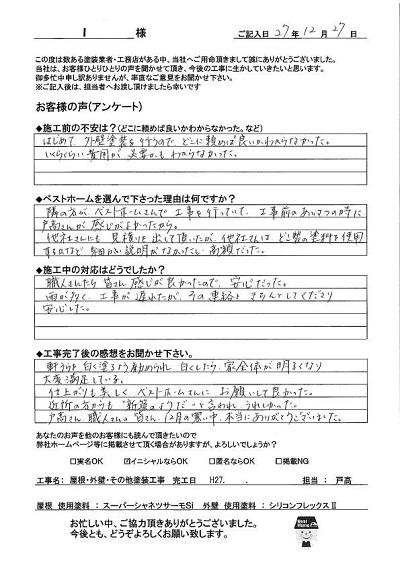 I 様
ご記入日 27年 12月 27日
この度は数ある塗装業者・工務店がある中、当社へご用命頂きまして誠にありがとうございました。
当社は、お客様ひとりひとりの声を聞かせて頂き、今後の工事に生かしていきたいと思います。
御多忙中申し訳ありませんが、率直なご意見をお聞かせ下さい。
※ご記入後は、担当者へお渡し頂けましたら幸いです
お客様の声(アンケート)
◆施工前の不安は?(どこに頼めば良いかわからなかった。など)
はじめて、外壁塗装を行うので、どこに頼めば良いかわからなかった。
いくらくらい費用が必要かもわからなかった。
◆ベストホームを選んで下さった理由は何ですか?
隣の方が、ベストホームさんで工事を行っていて、工事前のあいさつの時に
戸高さんが感じがよかったから。
他社さんにも見積りを出して頂いたが、他社さんは、どこ製の塗料を使用
するのかなど細かい説明がなかったし、高額だった。
◆施工中の対応はどうでしたか?
職人さんたち皆さん感じが良かったので、安心だった。
雨が多く、工事が遅れたが、その連絡もきちんとしてくださり
安心した。
◆工事完了後の感想をお聞かせ下さい。
軒うらを白く塗るよう勧められ、白くしたら、家全体が明るくなり
大変満足している。
仕上がりも美しく、ベストホームさんにお願いして良かった。
近所の方からも"新築のようだ"と言われ、うれしかった。
戸高さん、職人さんの皆さん、12月の寒い中、本当にありがとうございました。
あなたのお声を他のお客様にも読んで頂きたいので
弊社ホームページ等に掲載させて頂く場合がありますが、よろしいでしょうか?
□実名OK ☑イニシャルならOK □匿名ならOK □掲載NG
工事名: 屋根・外壁・その他塗装工事 完工日 H27. . 担当: 戸高
屋根 使用塗料: スーパーシャネツサーモSi 外壁 使用塗料: シリコンフレックスⅡ
お忙しい中、ご協力頂きありがとうございました。
今後とも、どうぞよろしくお願い致します。
Best Home